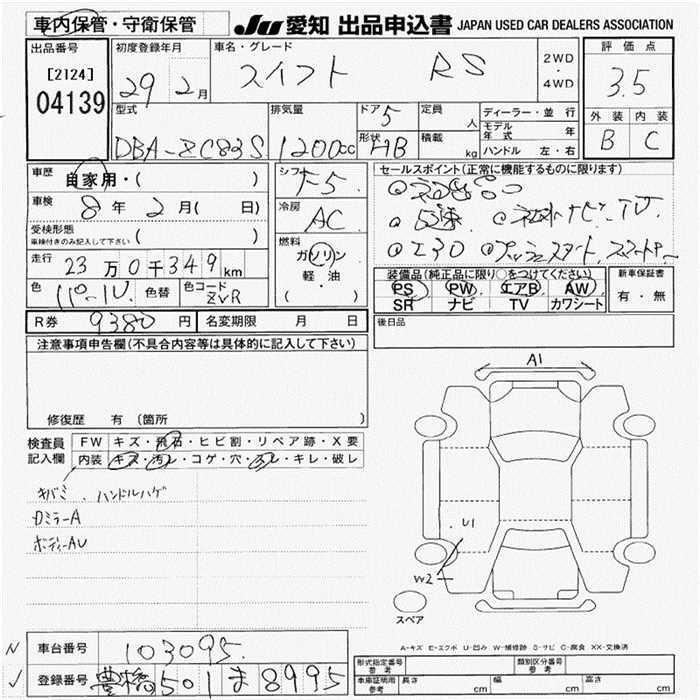 車内保管・守衛保管 JU 愛知 出品申込書 JAPAN USED CAR DEALERS ASSOCIATION
出品番号 初度登録年月 車名・グレード 2WD・4WD 評価点
[2124] 29 2月 スイフト RS 3.5
04139 型式 排気量 ドア 5 定員 人 ディーラー・並行 外装 内装
モデル年式 年
DBA-ZC83S 1200cc 形状 HB 積載 kg ハンドル 左・右 B C
車歴 自家用・( ) シフト F5 セールスポイント(正常に機能するものに限ります)
車検 8年 2月( 日) 冷房 AC
受検形態 車検付きのみ記入して下さい ( ) 5速 ナビ、TV
燃料 ガソリン 軽・油 ( ) プッシュスタート
走行 23万0千349km 装備品(純正品に限り○をつけてください) 新車保証書
色 パール 色替 色コード ZVR PS PW エアB AW 有・無
SR ナビ TV カワシート
R券 9380円 名変期限 月 日 後日品
注意事項申告欄(不具合内容等は具体的に記入して下さい)
修復歴 有 〔箇所 〕
A1
検査員記入欄 FW キズ・飛石・ヒビ割・リペア跡・X要
内装 キズ・汚レ・コゲ・穴・スレ・キレ・破レ
キバミ、ハンドルハゲ
ロミラーA
ボディーAU
U1
W2
スペア
A-キズ E-エクボ U-凹み W-補修跡 S-サビ C-腐食 XX-交換済
N 車台番号 103095
レ 登録番号 豊橋 501 ま 8995
形式指定番号 参考 類別区分番号 参考
車庫証明用 参考 長さ cm 幅 cm 高さ cm